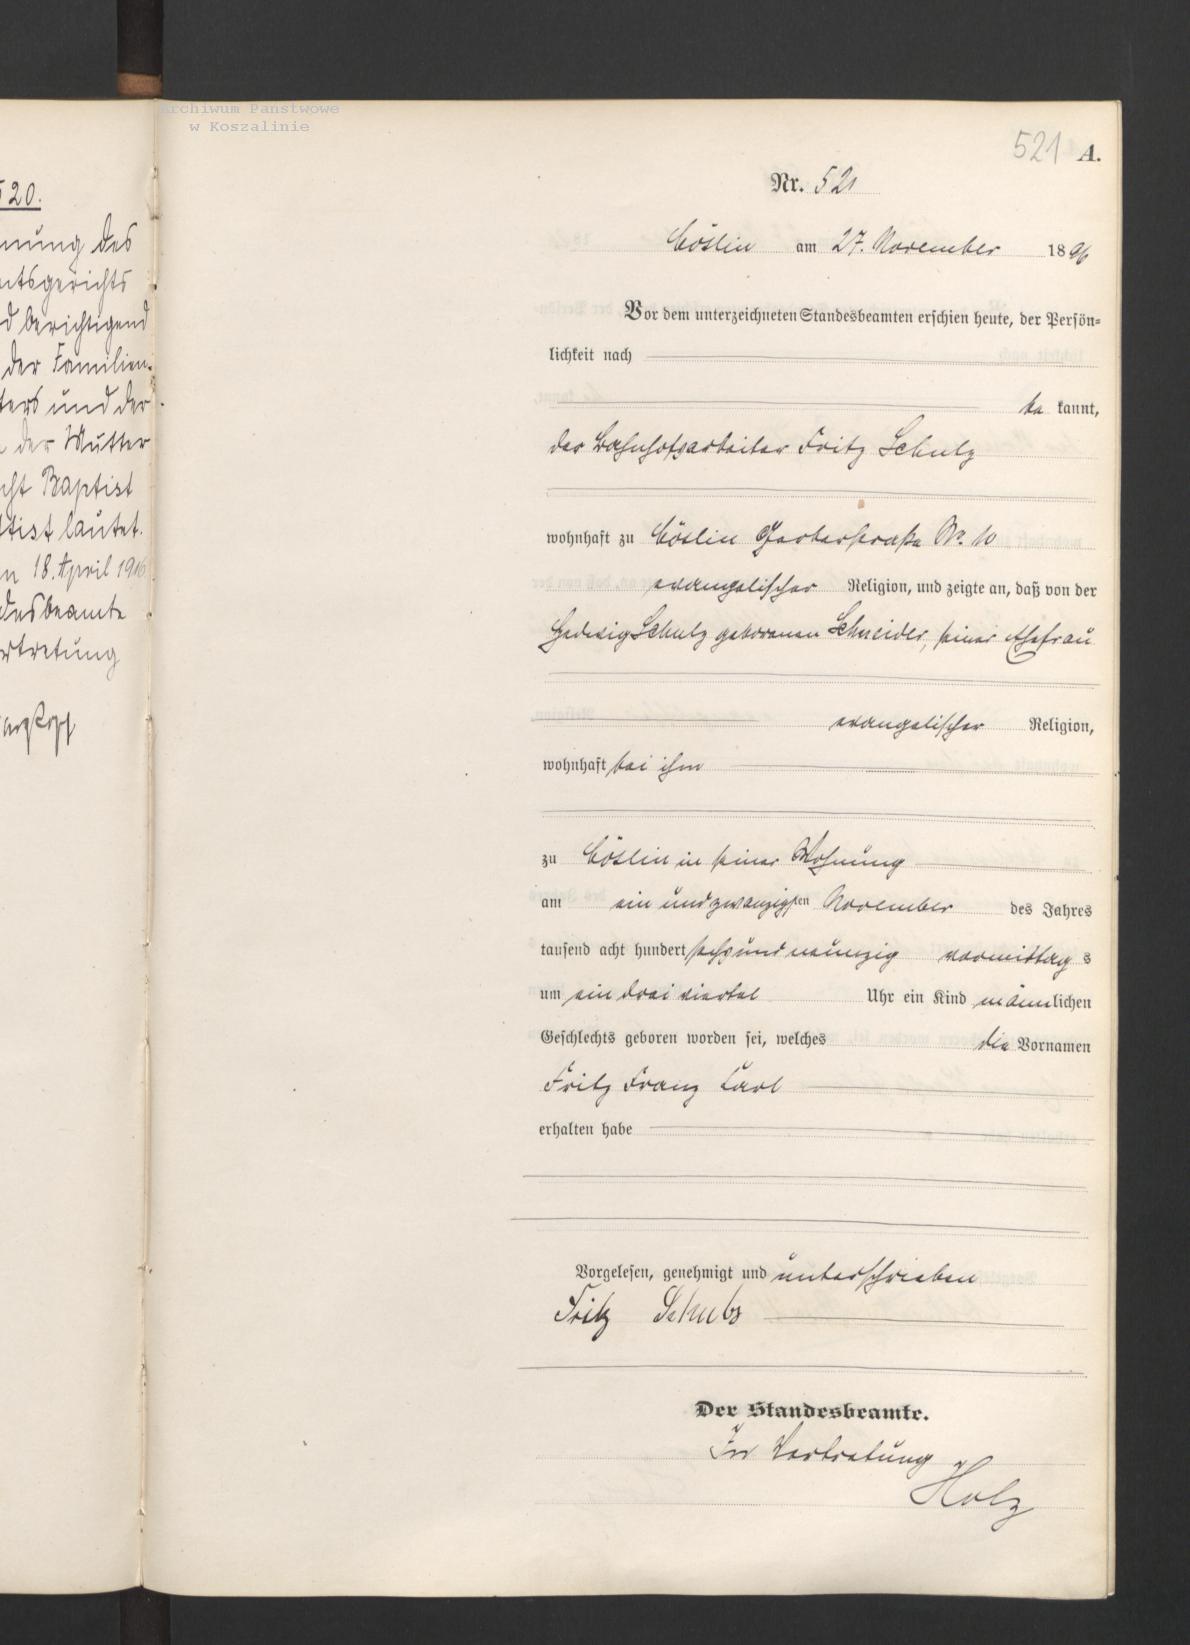 Archiwum Państwowe
w Koszalinie
520.
nung des
mtsgerichts
d berichtigend
der Familien-
ters und der
der Mutter
cht Baptist
tist lautet.
n 18. April 1916
desbeamte
ertretung
521 A.
Nr. 521
Cöslin am 27. November 1896
Vor dem unterzeichneten Standesbeamten erschien heute, der Persön=
lichkeit nach
be kannt,
der Bahnhofsarbeiter Fritz Schulz
wohnhaft zu Cöslin Gerberstraße Nr. 10
evangelischer Religion, und zeigte an, daß von der
Hedwig Schulz geborenen Schneider, seiner Ehefrau
evangelischer Religion,
wohnhaft bei ihm
zu Cöslin in seiner Wohnung
am ein und zwanzigsten November des Jahres
tausend acht hundert sechs und neunzig vormittag s
um ein drei viertel Uhr ein Kind männlichen
Geschlechts geboren worden sei, welches die Vornamen
Fritz Franz Carl
erhalten habe
Vorgelesen, genehmigt und unterschrieben
Fritz Schulz
Der Standesbeamte.
In Vertretung
Holz